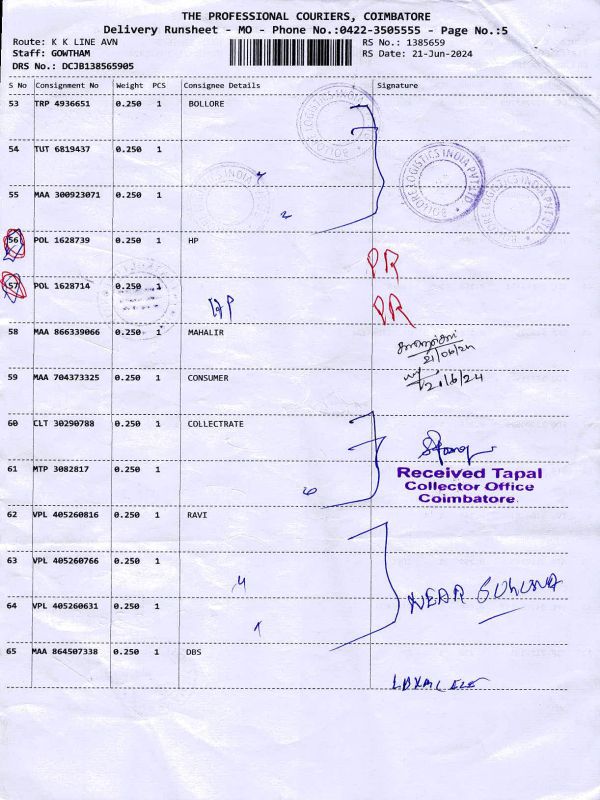 THE PROFESSIONAL COURIERS, COIMBATORE
Delivery Runsheet - MO - Phone No.:0422-3505555 - Page No.:5
Route: K K LINE AVN RS No.: 1385659
Staff: GOWTHAM RS Date: 21-Jun-2024
DRS No.: DCJB138565905
S No Consignment No Weight PCS Consignee Details Signature
53 TRP 4936651 0.250 1 BOLLORE
54 TUT 6819437 0.250 1
BOLLORE LOGISTICS INDIA PVT LTD
55 MAA 300923071 0.250 1
56 POL 1628739 0.250 1 HP
PR
57 POL 1628714 0.250 1
HP PR
58 MAA 866339066 0.250 1 MAHALIR
21/06/24
59 MAA 704373325 0.250 1 CONSUMER
60 CLT 30290788 0.250 1 COLLECTRATE
61 MTP 3082817 0.250 1
Received Tapal
Collector Office
Coimbatore.
62 VPL 405260816 0.250 1 RAVI
63 VPL 405260766 0.250 1
NEAR
64 VPL 405260631 0.250 1
65 MAA 864507338 0.250 1 DBS